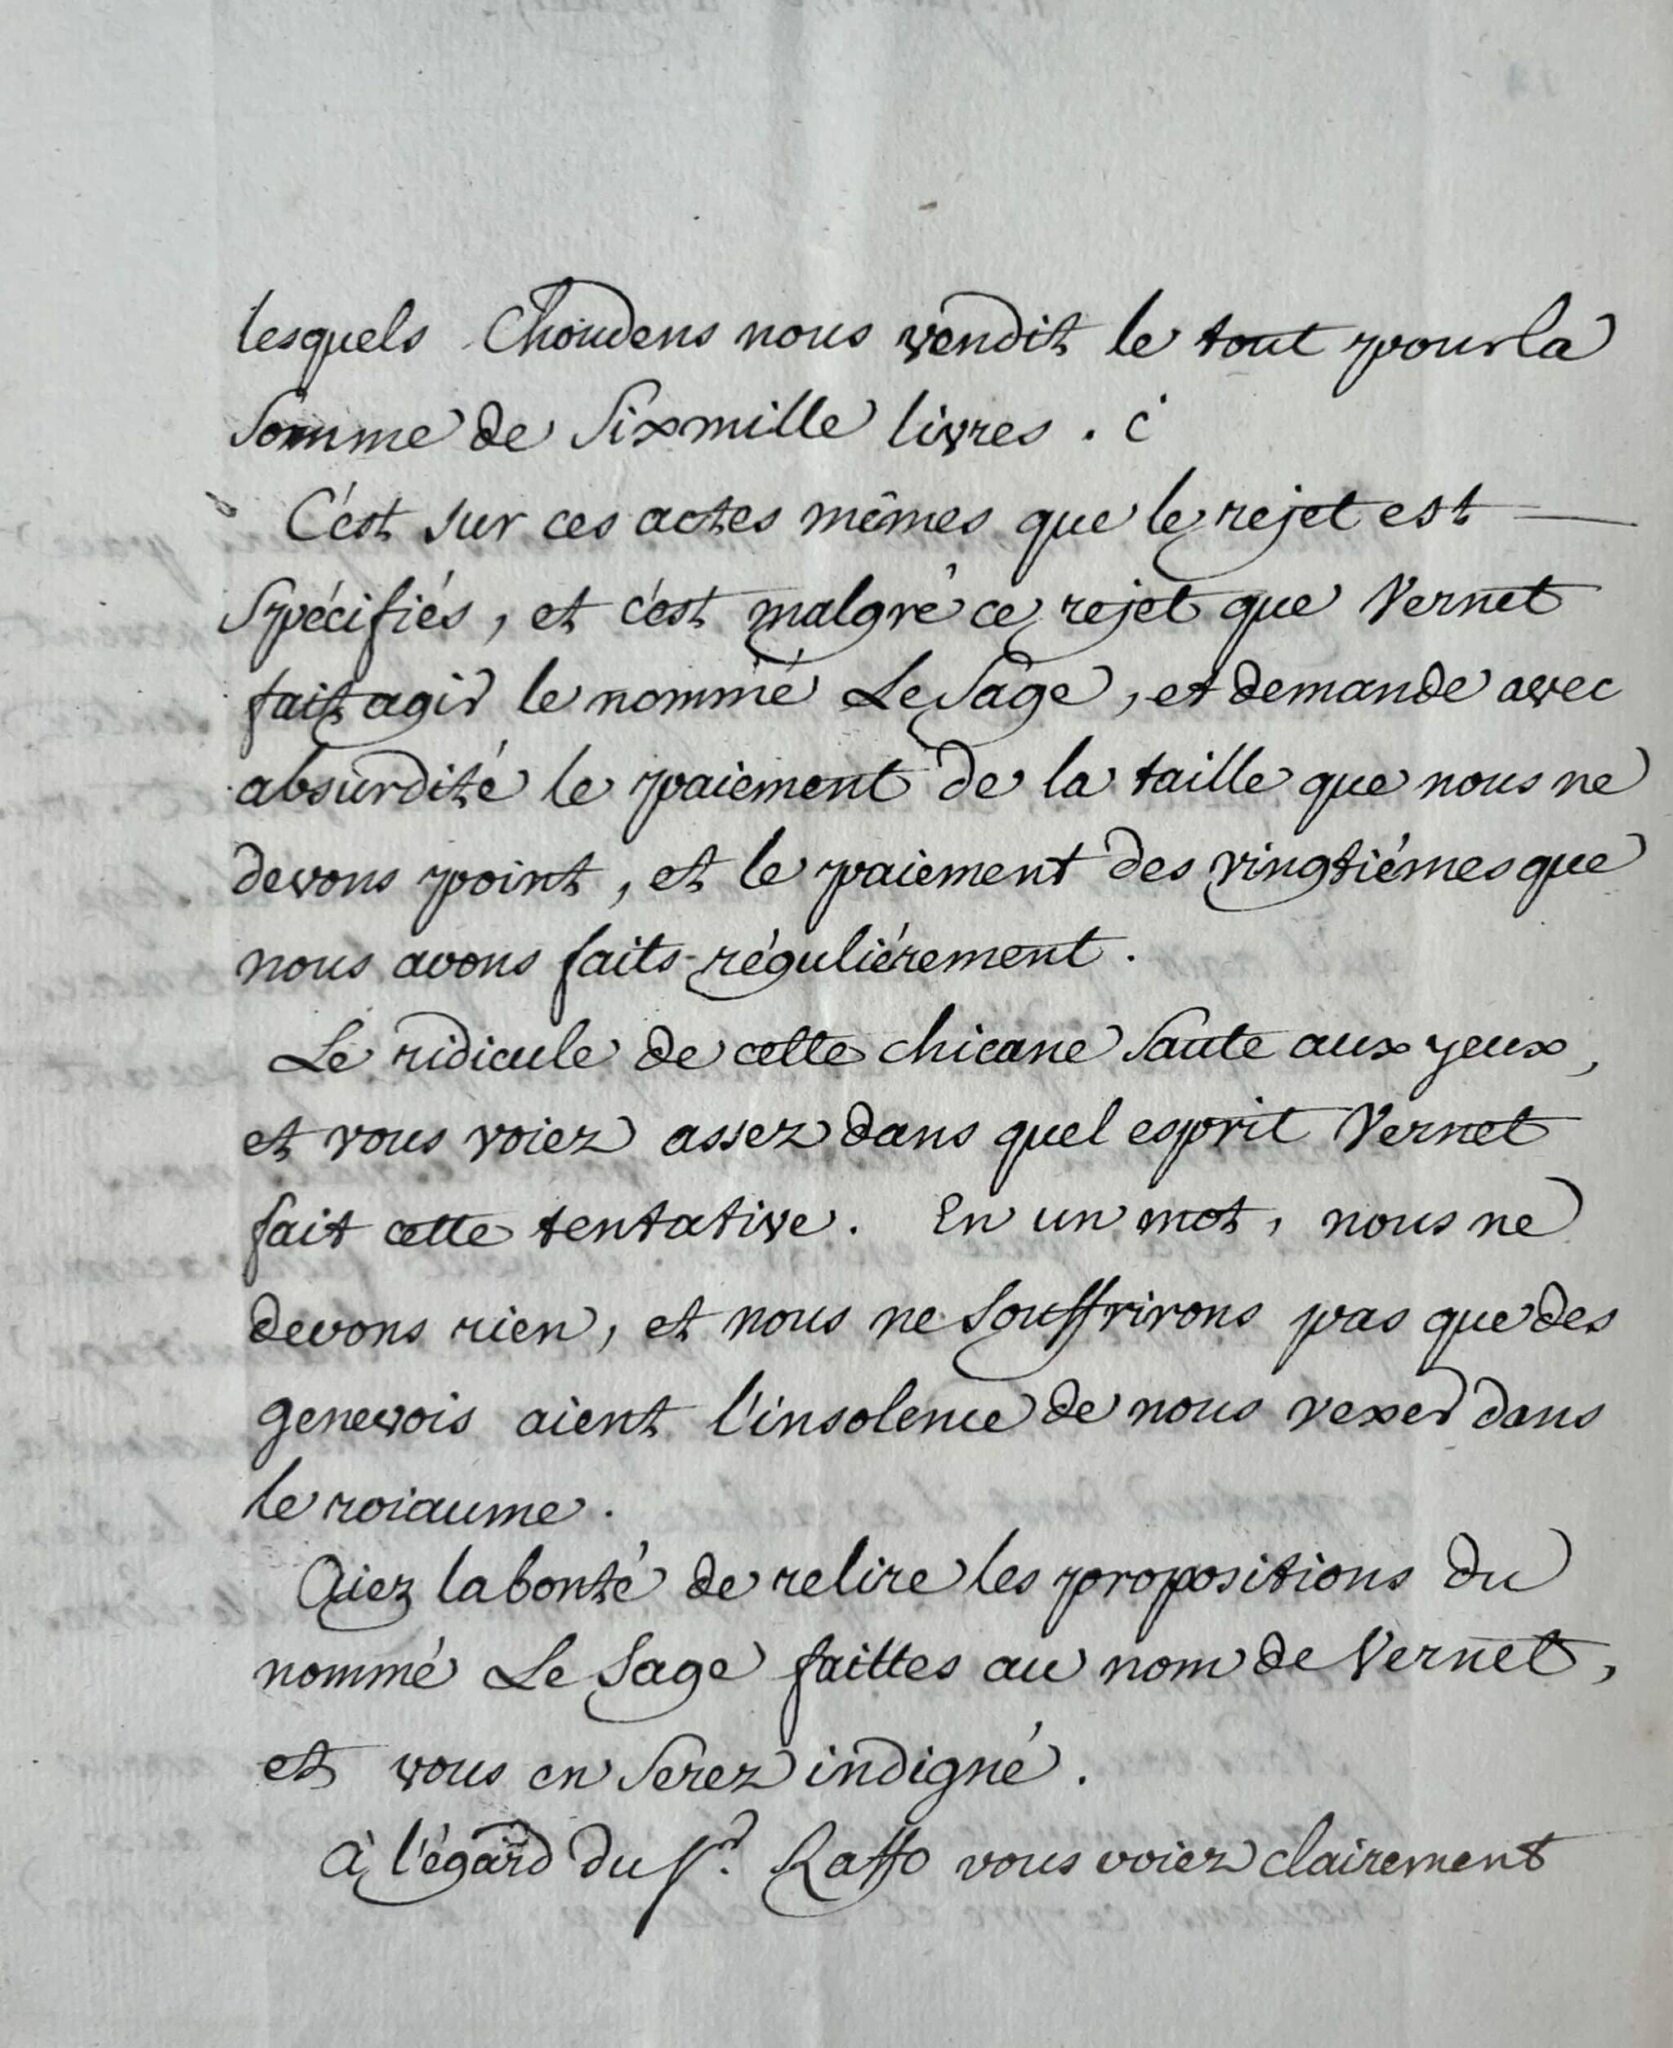 lesquels Choudens nous vendit le tout pour la
Somme de Sixmille livres. C
C'est sur ces actes mêmes que le rejet est
Spécifiés, et c'est malgré ce rejet que Vernet
fait agir le nommé Le Sage, et demande avec
absurdité le paiement de la taille que nous ne
devons point, et le paiement des vingtiémes que
nous avons faits réguliérement.
Le ridicule de cette chicane Saute aux yeux,
et vous voiez assez dans quel esprit Vernet
fait cette tentative. En un mot, nous ne
devons rien, et nous ne Souffrirons pas que des
genevois aient l'insolence de nous vexer dans
le roiaume.
Aiez la bonté de relire les propositions du
nommé Le Sage faittes au nom de Vernet,
et vous en Serez indigné.
à l'égard du Sr. Raffo vous voiez clairement